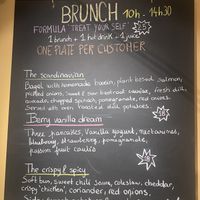 BRUNCH 10h - 14h30
FORMULA TREAT YOUR SELF
1 brunch + 1 hot drink + 1 juice
ONE PLATE PER CUSTOMER
The scandinavian
Bagel with homemade bacon, plant based salmon,
pickled onions, sweet & sour beetroot carrots, fresh dill,
avocado, chopped spinach, pomegranate, red onions.
Served with oven roasted diced potatoes.
Berry vanilla dream
18
Three pancakes, Vanilla yogurt,
blueberry, strawberry, pomegranate,
passion fruit coulis
The crispy & spicy
Soft bun, sweet chili sauce, coleslaw, cheddar,
crispy chicken, coriander, red onions.